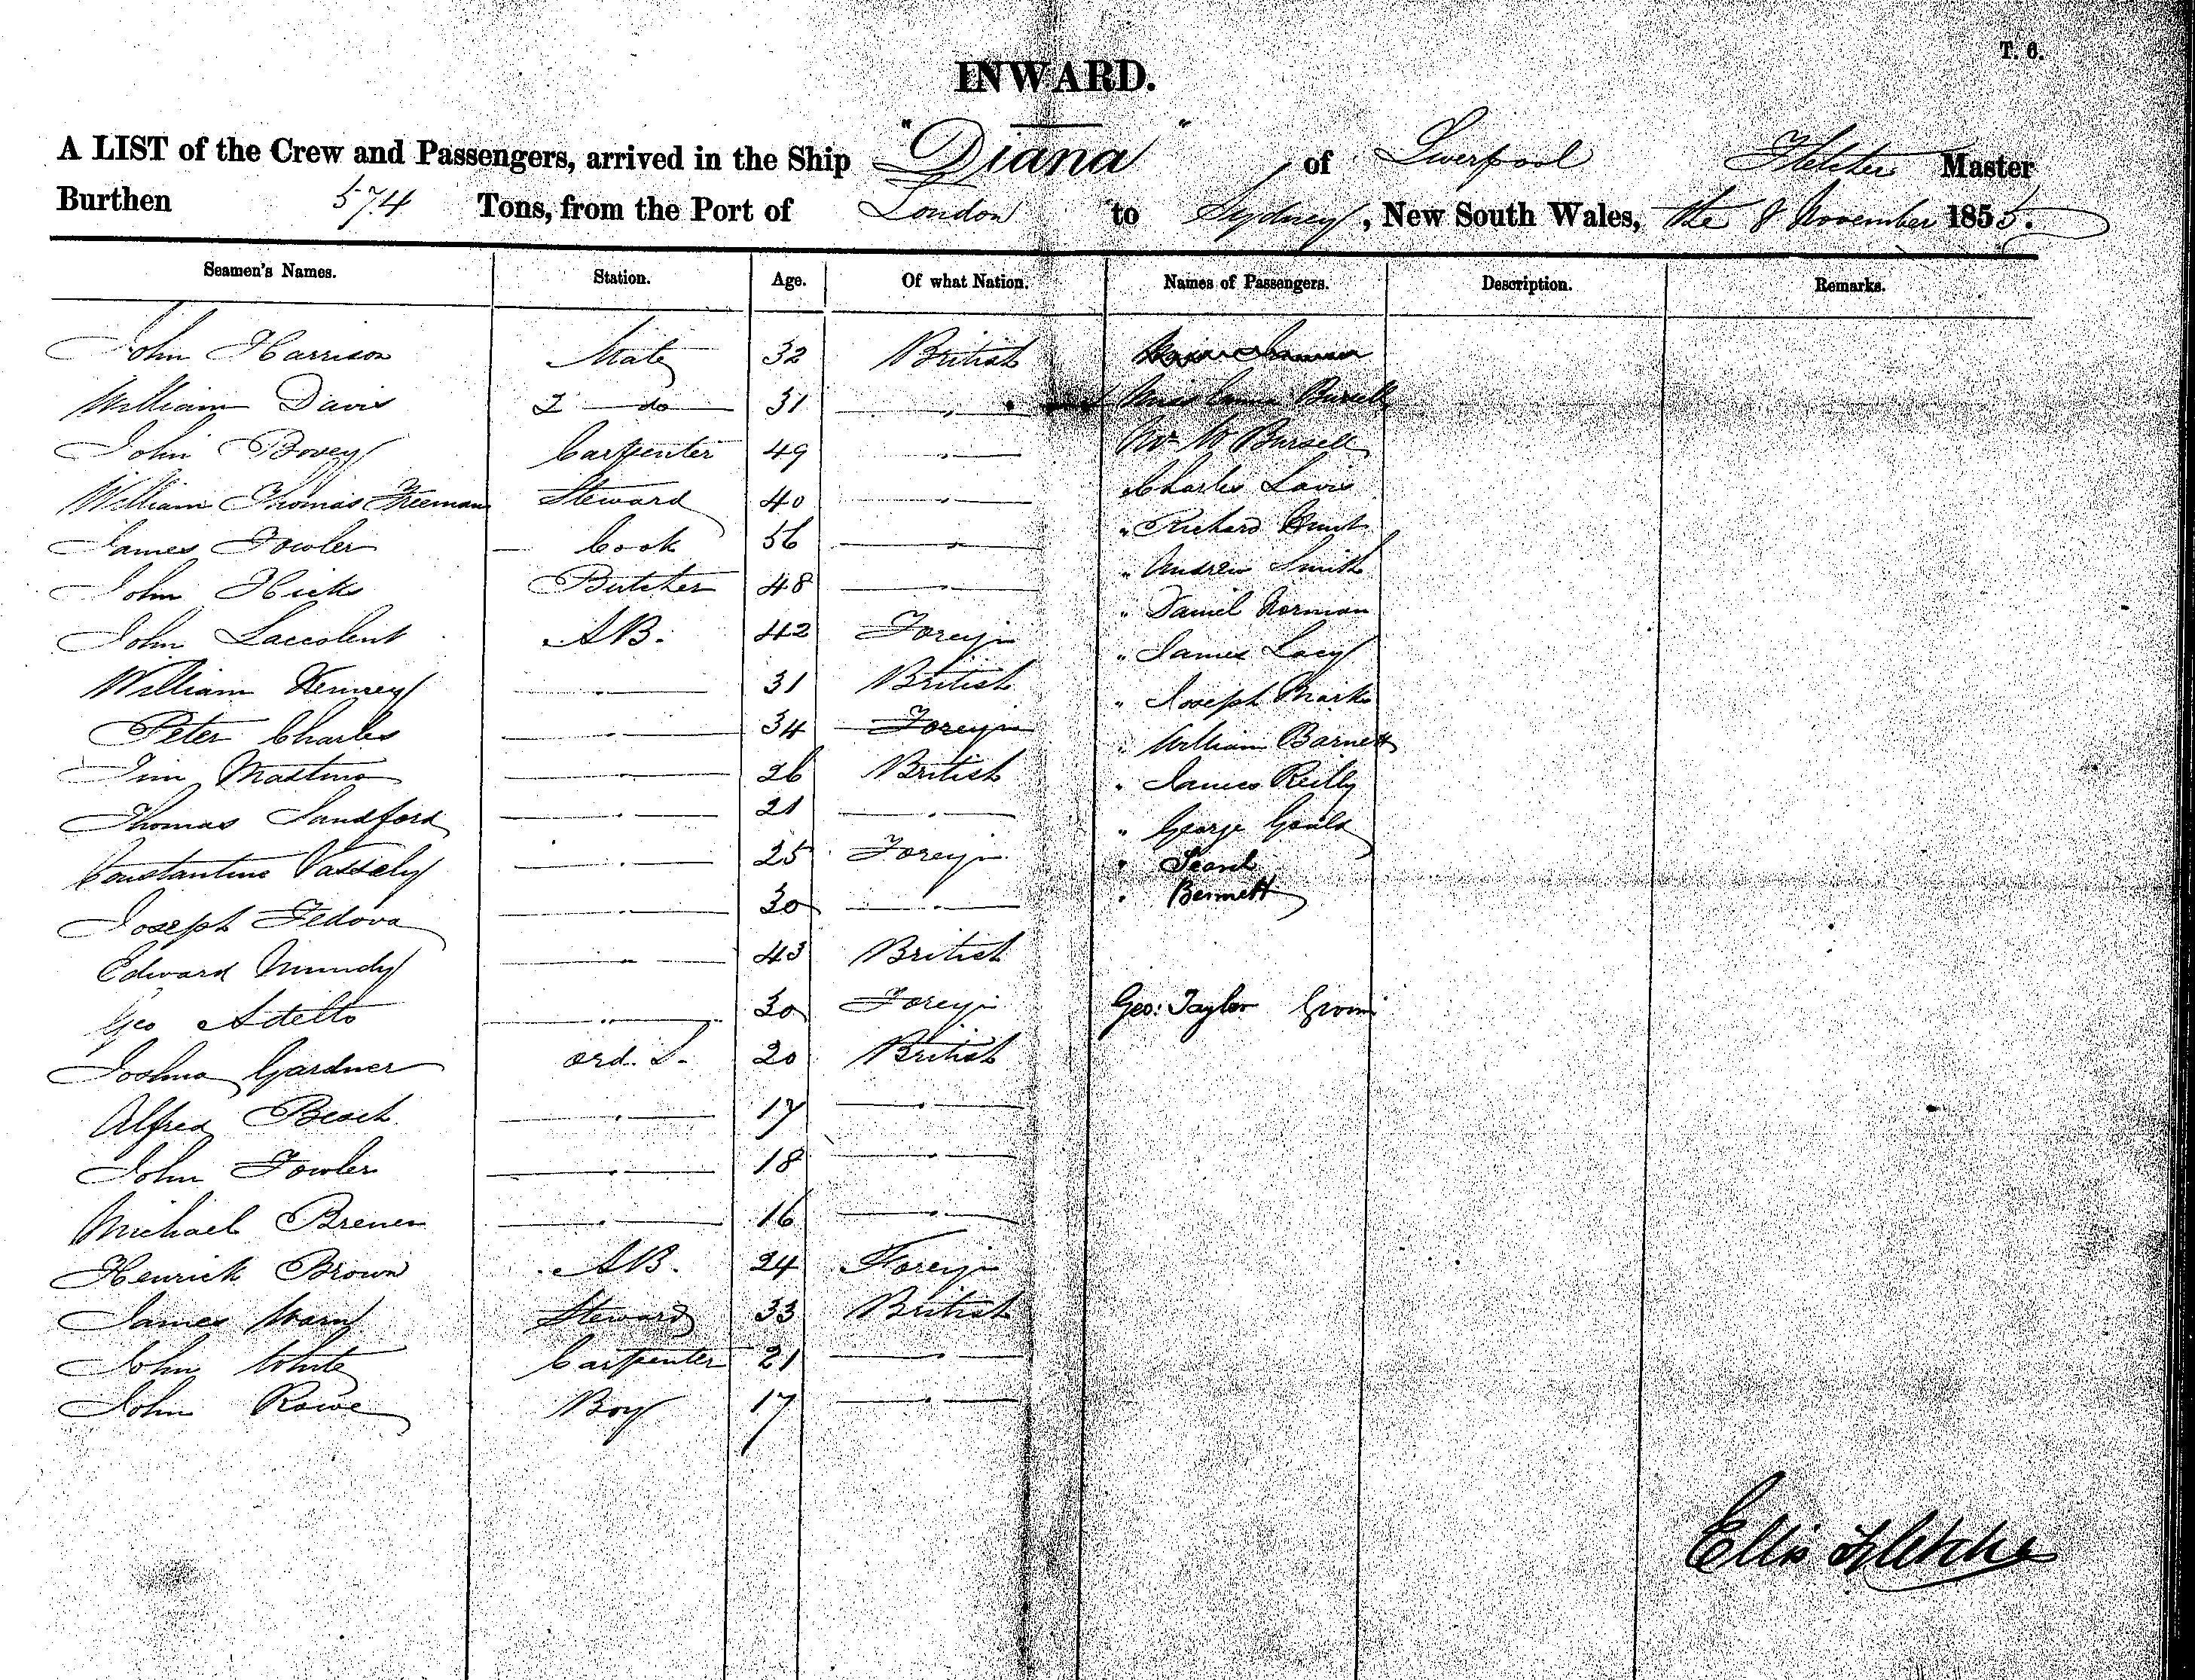 T. 6.
INWARD.
A LIST of the Crew and Passengers, arrived in the Ship "Diana" of Liverpool Fletcher Master
Burthen 574 Tons, from the Port of London to Sydney, New South Wales, the 8 November 1855.
Seamen's Names. Station. Age. Of what Nation. Names of Passengers. Description. Remarks.
John Harrison Mate 32 British
William Davis 2 — do — 31 — " — Miss Bursell
John Bovey Carpenter 49 — " — Mr W Bursell
William Thomas Freeman Steward 40 — " — Charles Lavis
James Fowler — Cook 56 — " — " Richard Hunt
John Hicks Butcher 48 — " — " Andrew Smith
John Laccolent A.B. 42 Foreyn " Daniel Norman
William Kenney — " — 31 British " James Lacy
Peter Charles — " — 34 Foreyn " Joseph Marks
Jim — " — 26 British " William Barnett
Thomas Sandford — " — 21 — " — " James Reilly
Constantine Vassely — " — 25 Foreyn " George Gould
Joseph Fedova — " — 30 — " — "
" Bennett
Edward Mundy — " — 43 British
Geo Adelto — " — 30 Foreyn Geo: Taylor Groom
Joshua Gardner ord. S. 20 British
Alfred Beach — " — 17 — " —
John Fowler — " — 18 — " —
Michael Brenen — " — 16 — " —
Henrick Brown A.B. 24 Foreyn
James Warn Steward 33 British
John White Carpenter 21 — " —
John Rowe Boy 17 — " —
Ellis Fletcher